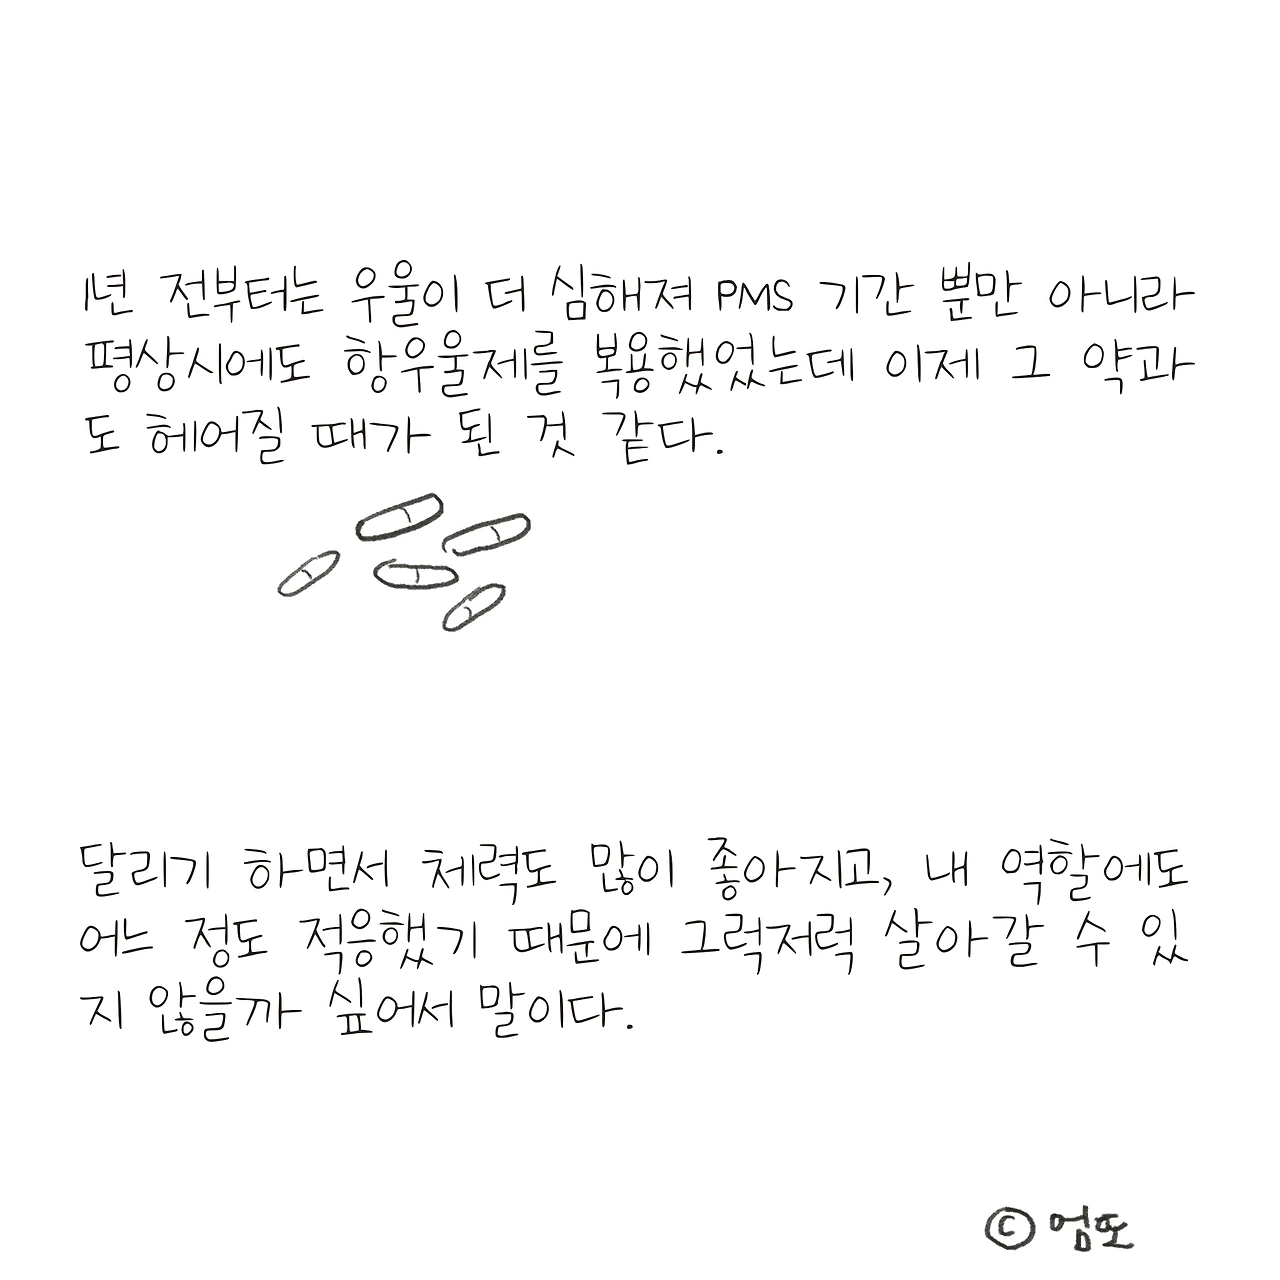 1년 전부터는 우울이 더 심해져 PMS 기간 뿐만 아니라
평상시에도 항우울제를 복용했었는데 이제 그 약과
도 헤어질 때가 된 것 같다.
달리기 하면서 체력도 많이 좋아지고, 내 역할에도
어느 정도 적응했기 때문에 그럭저럭 살아갈 수 있
지 않을까 싶어서 말이다.
© 엄또